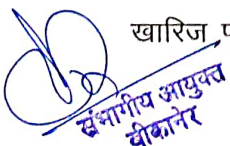 खारिज
संभागीय आयुक्त
बीकानेर